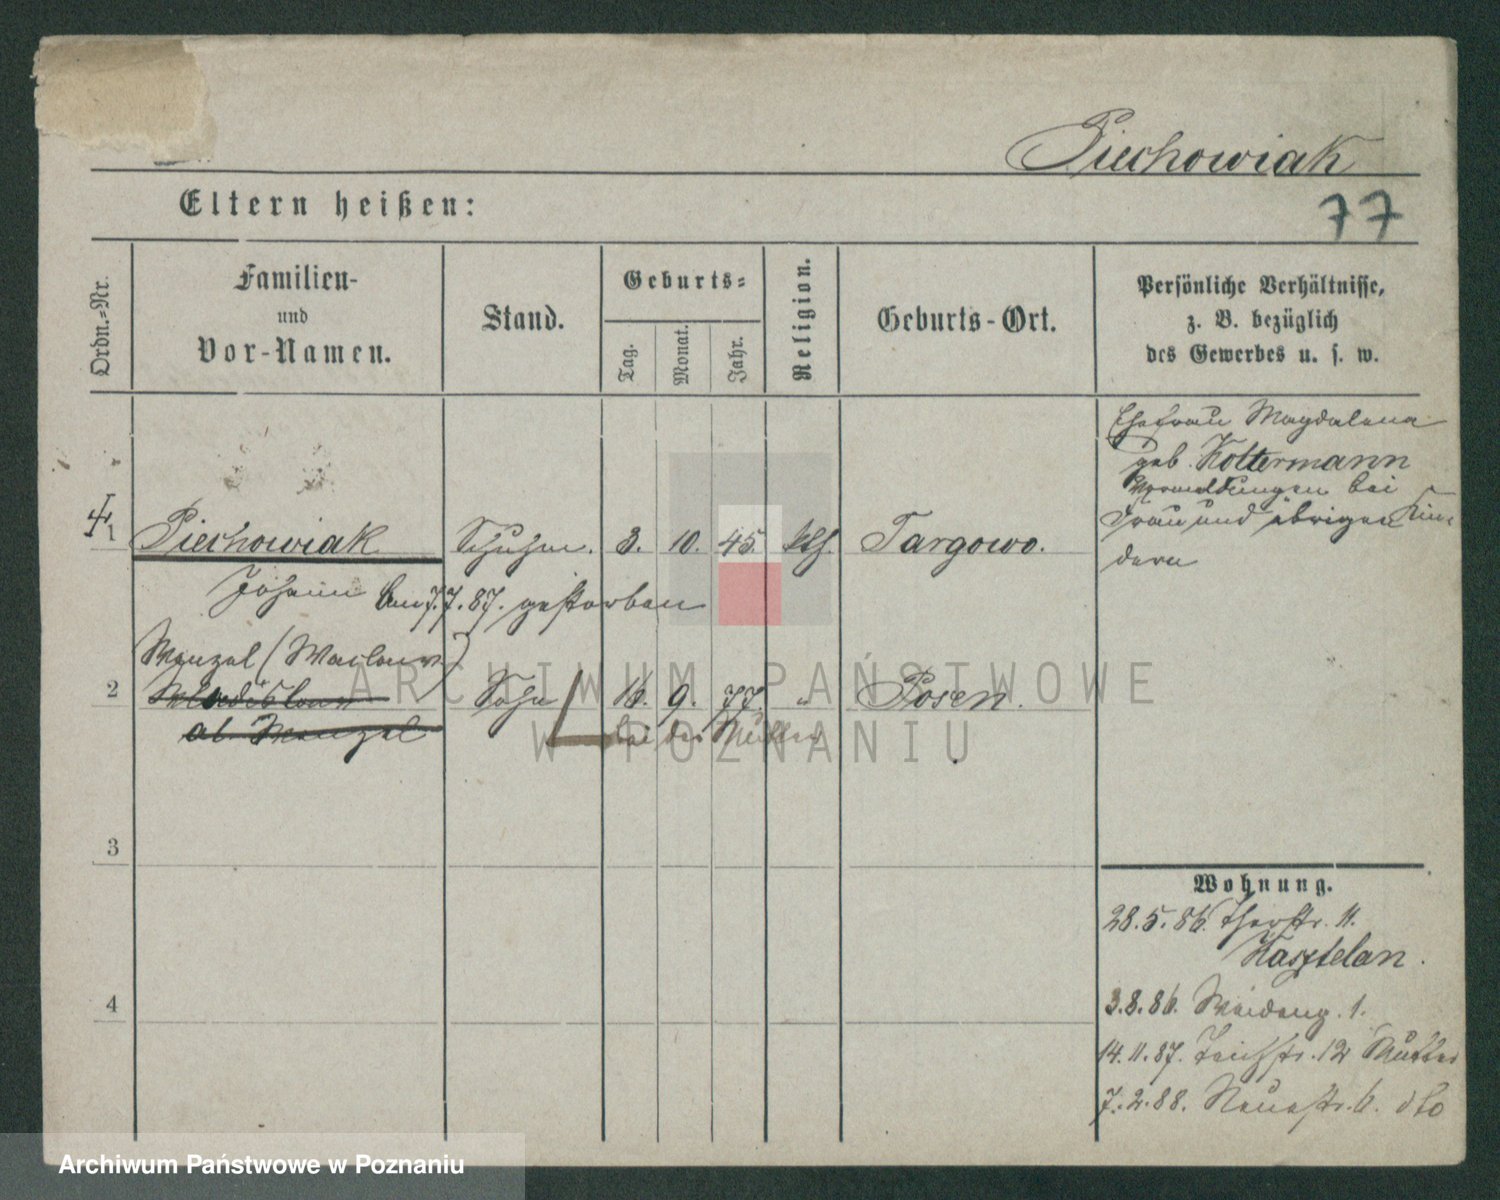 Piechowiak
Eltern heißen:
77
Ordn.-Nr.
Familien-
und
Vor-Namen.
Stand.
Geburts-
Tag.
Monat.
Jahr.
Religion.
Geburts-Ort.
Persönliche Verhältnisse,
z. B. bezüglich
des Gewerbes u. s. w.
Ehefrau Magdalena
geb. Koltermann
bei
Frau und übrigen Kin-
dern
1 Piechowiak Schuhm. 3. 10. 45. kth. Targowo.
Johann am 7.7.87. gestorben
Wenzel (Waclaw)
2 Wladislaw Sohn 16. 9. 77. " Posen.
al. Wenzel bei der Mutter
3
4
Wohnung.
28.5.86. Thorstr. 11.
Kasztelan.
3.8.86. Weideng. 1.
14.11.87. Teichstr. 12 Mutter
7.2.88. Neuestr. 6. dto
ARCHIWUM PAŃSTWOWE
W POZNANIU
Archiwum Państwowe w Poznaniu